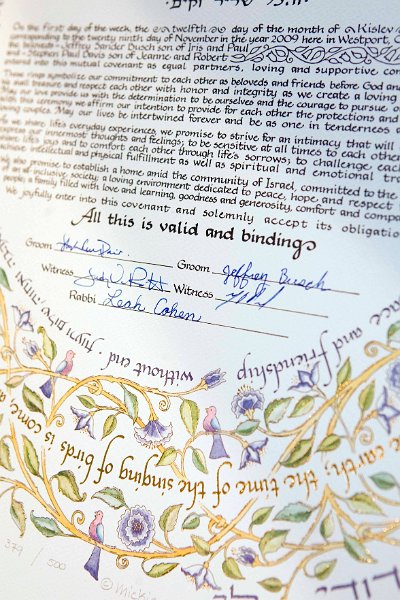 On the first day of the week, the twelfth day of the month of Kislev
corresponding to the twenty ninth day of November in the year 2009 here in Westport, C
the beloveds Jeffrey Sander Busch son of Iris and Paul
Stephen Paul Davis son of Jeanne and Robert
into this mutual covenant as equal partners, loving and supportive
These rings symbolize our commitment to each other as beloveds and friends before God and
treasure and respect each other with honor and integrity as we create a loving
May you provide us with the determination to be ourselves and the courage to pursue
ceremony we affirm our intention to provide for each other the protections and
couples. May our lives be intertwined forever and be as one in tenderness
life's everyday experiences, we promise to strive for an intimacy that will
our innermost thoughts and feelings; to be sensitive at all times to each other
life's joys and to comfort each other through life's sorrows; to challenge each
intellectual and physical fulfillment as well as spiritual and emotional
to establish a home amid the community of Israel, committed to the
an inclusive society: a loving environment dedicated to peace, hope, and respect
a family filled with love and learning, goodness and generosity, comfort and
We joyfully enter into this covenant and solemnly accept its
All this is valid and binding
Groom Groom Jeffrey Busch
Witness Witness
Rabbi Leah Cohen
without and
and friendship
earth; the time of the singing of birds is come,
379 / 500
© Mickie